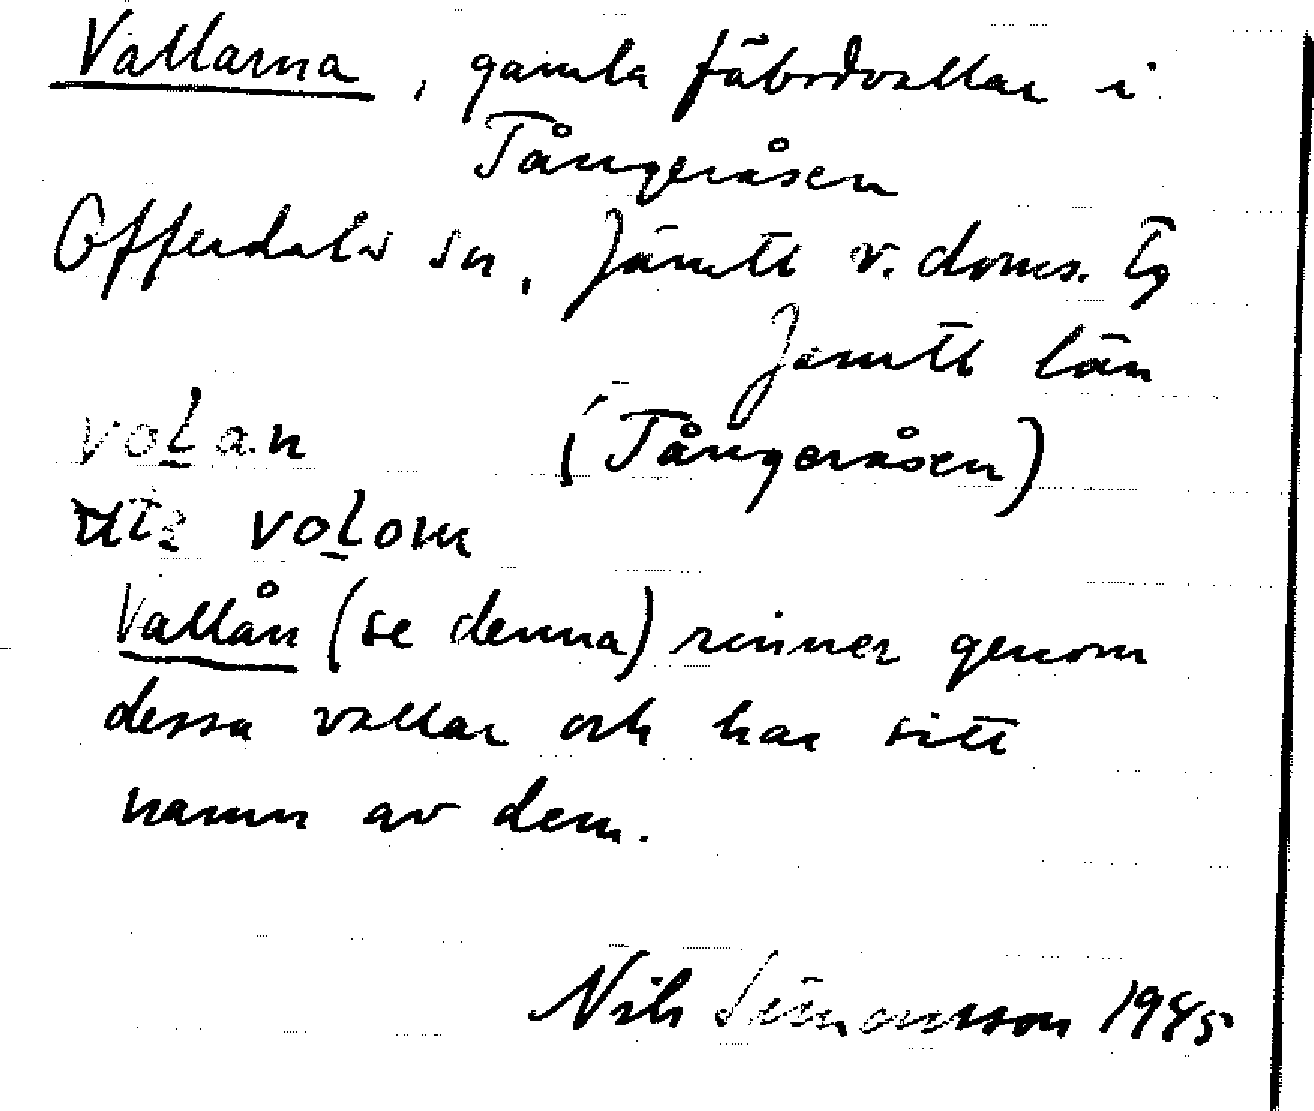 Vallarna, gamla fäbodvallar i
Tångeråsen
Offerdals sn, Jämtl v. doms. tg
Jämtl län
voLan (Tångeråsen)
uti voLom
Vallån (se denna) rinner genom
dessa vallar och har sitt
namn av dem.
Nils Simonsson 1945